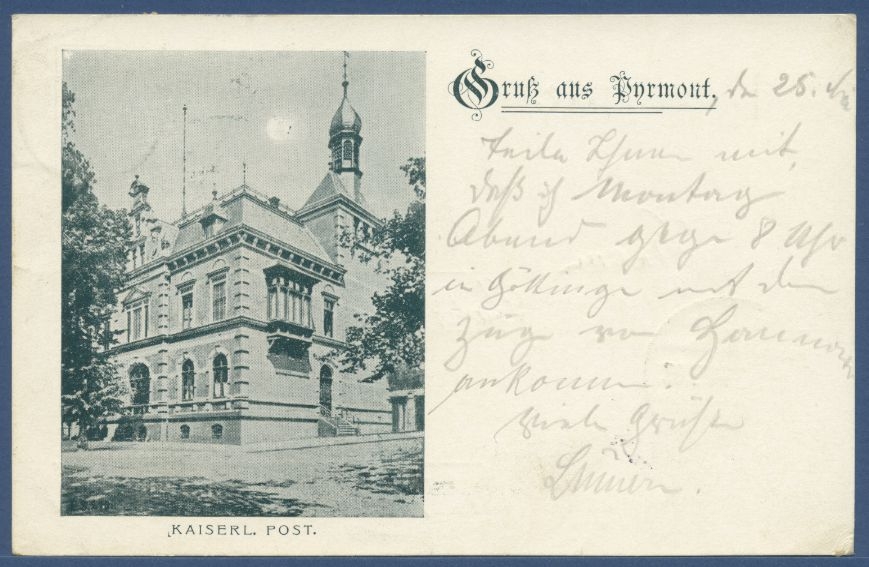 Gruß aus Pyrmont, d. 25.
Teile Ihnen mit,
daß ich Montag
Abend gegen 8 Uhr
in Göttingen mit dem
Zug von Hannover
ankomme.
Viele Grüße
KAISERL. POST.